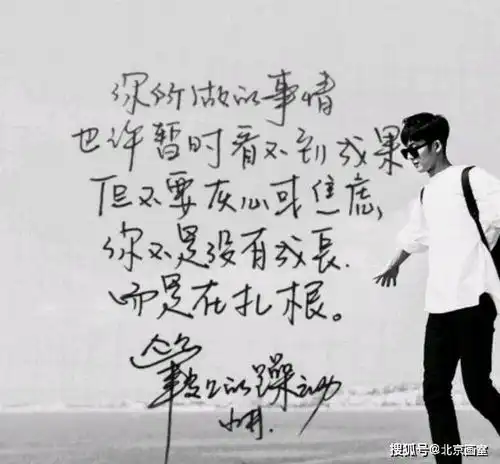 你所做的事情
也许暂时看不到成果
但不要灰心或焦虑,
你不是没有成長.
而是在扎根。
的躁动
搜狐号@北京画室